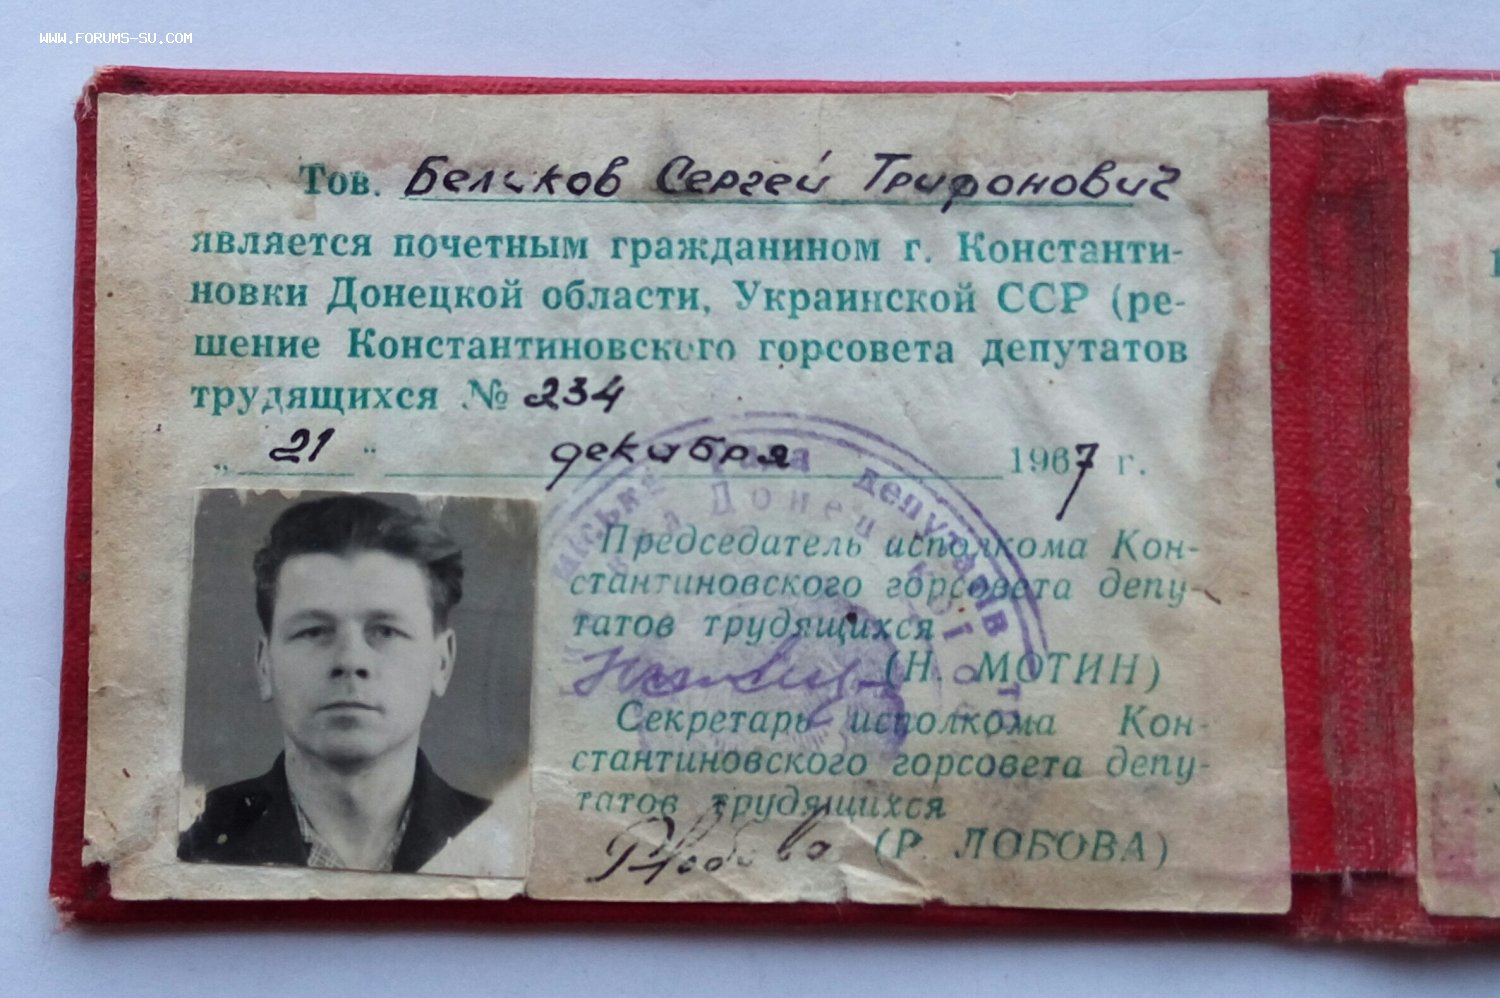 WWW.FORUMS-SU.COM
Тов. Беликов Сергей Трифонович
является почетным гражданином г. Константи-
новки Донецкой области, Украинской ССР (ре-
шение Константиновского горсовета депутатов
трудящихся № 234
„ 21 " декабря 1967 г.
Председатель исполкома Кон-
стантиновского горсовета депу-
татов трудящихся
(Н. МОТИН)
Секретарь исполкома Кон-
стантиновского горсовета депу-
татов трудящихся
(Р. ЛОБОВА)
рада депутатів
Донецької